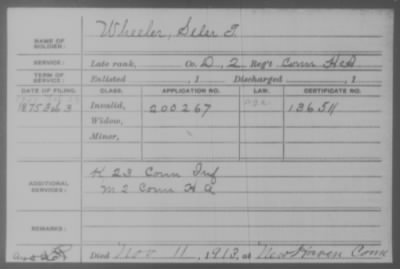 NAME OF SOLDIER: Wheeler,
SERVICE: Late rank, Co. D, 2 Reg't Conn H A
TERM OF SERVICE: Enlisted , 1 Discharged , 1
DATE OF FILING. CLASS. APPLICATION NO. LAW. CERTIFICATE NO.
1875 Feb 3 Invalid, 200267 136511
Widow,
Minor,
ADDITIONAL SERVICES: K 23 Conn Inf
M 2 Conn H A
REMARKS:
Died Nov 11, 1913, at New Haven Conn